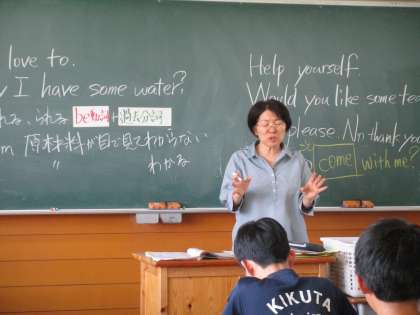 love to.
I have some water?
れる、られる be動詞 + 過去分詞
原材料が目で見てわからない
〃 わかる
Help yourself.
Would you like some tea
please. No thank you
come with me?
KIKUTA